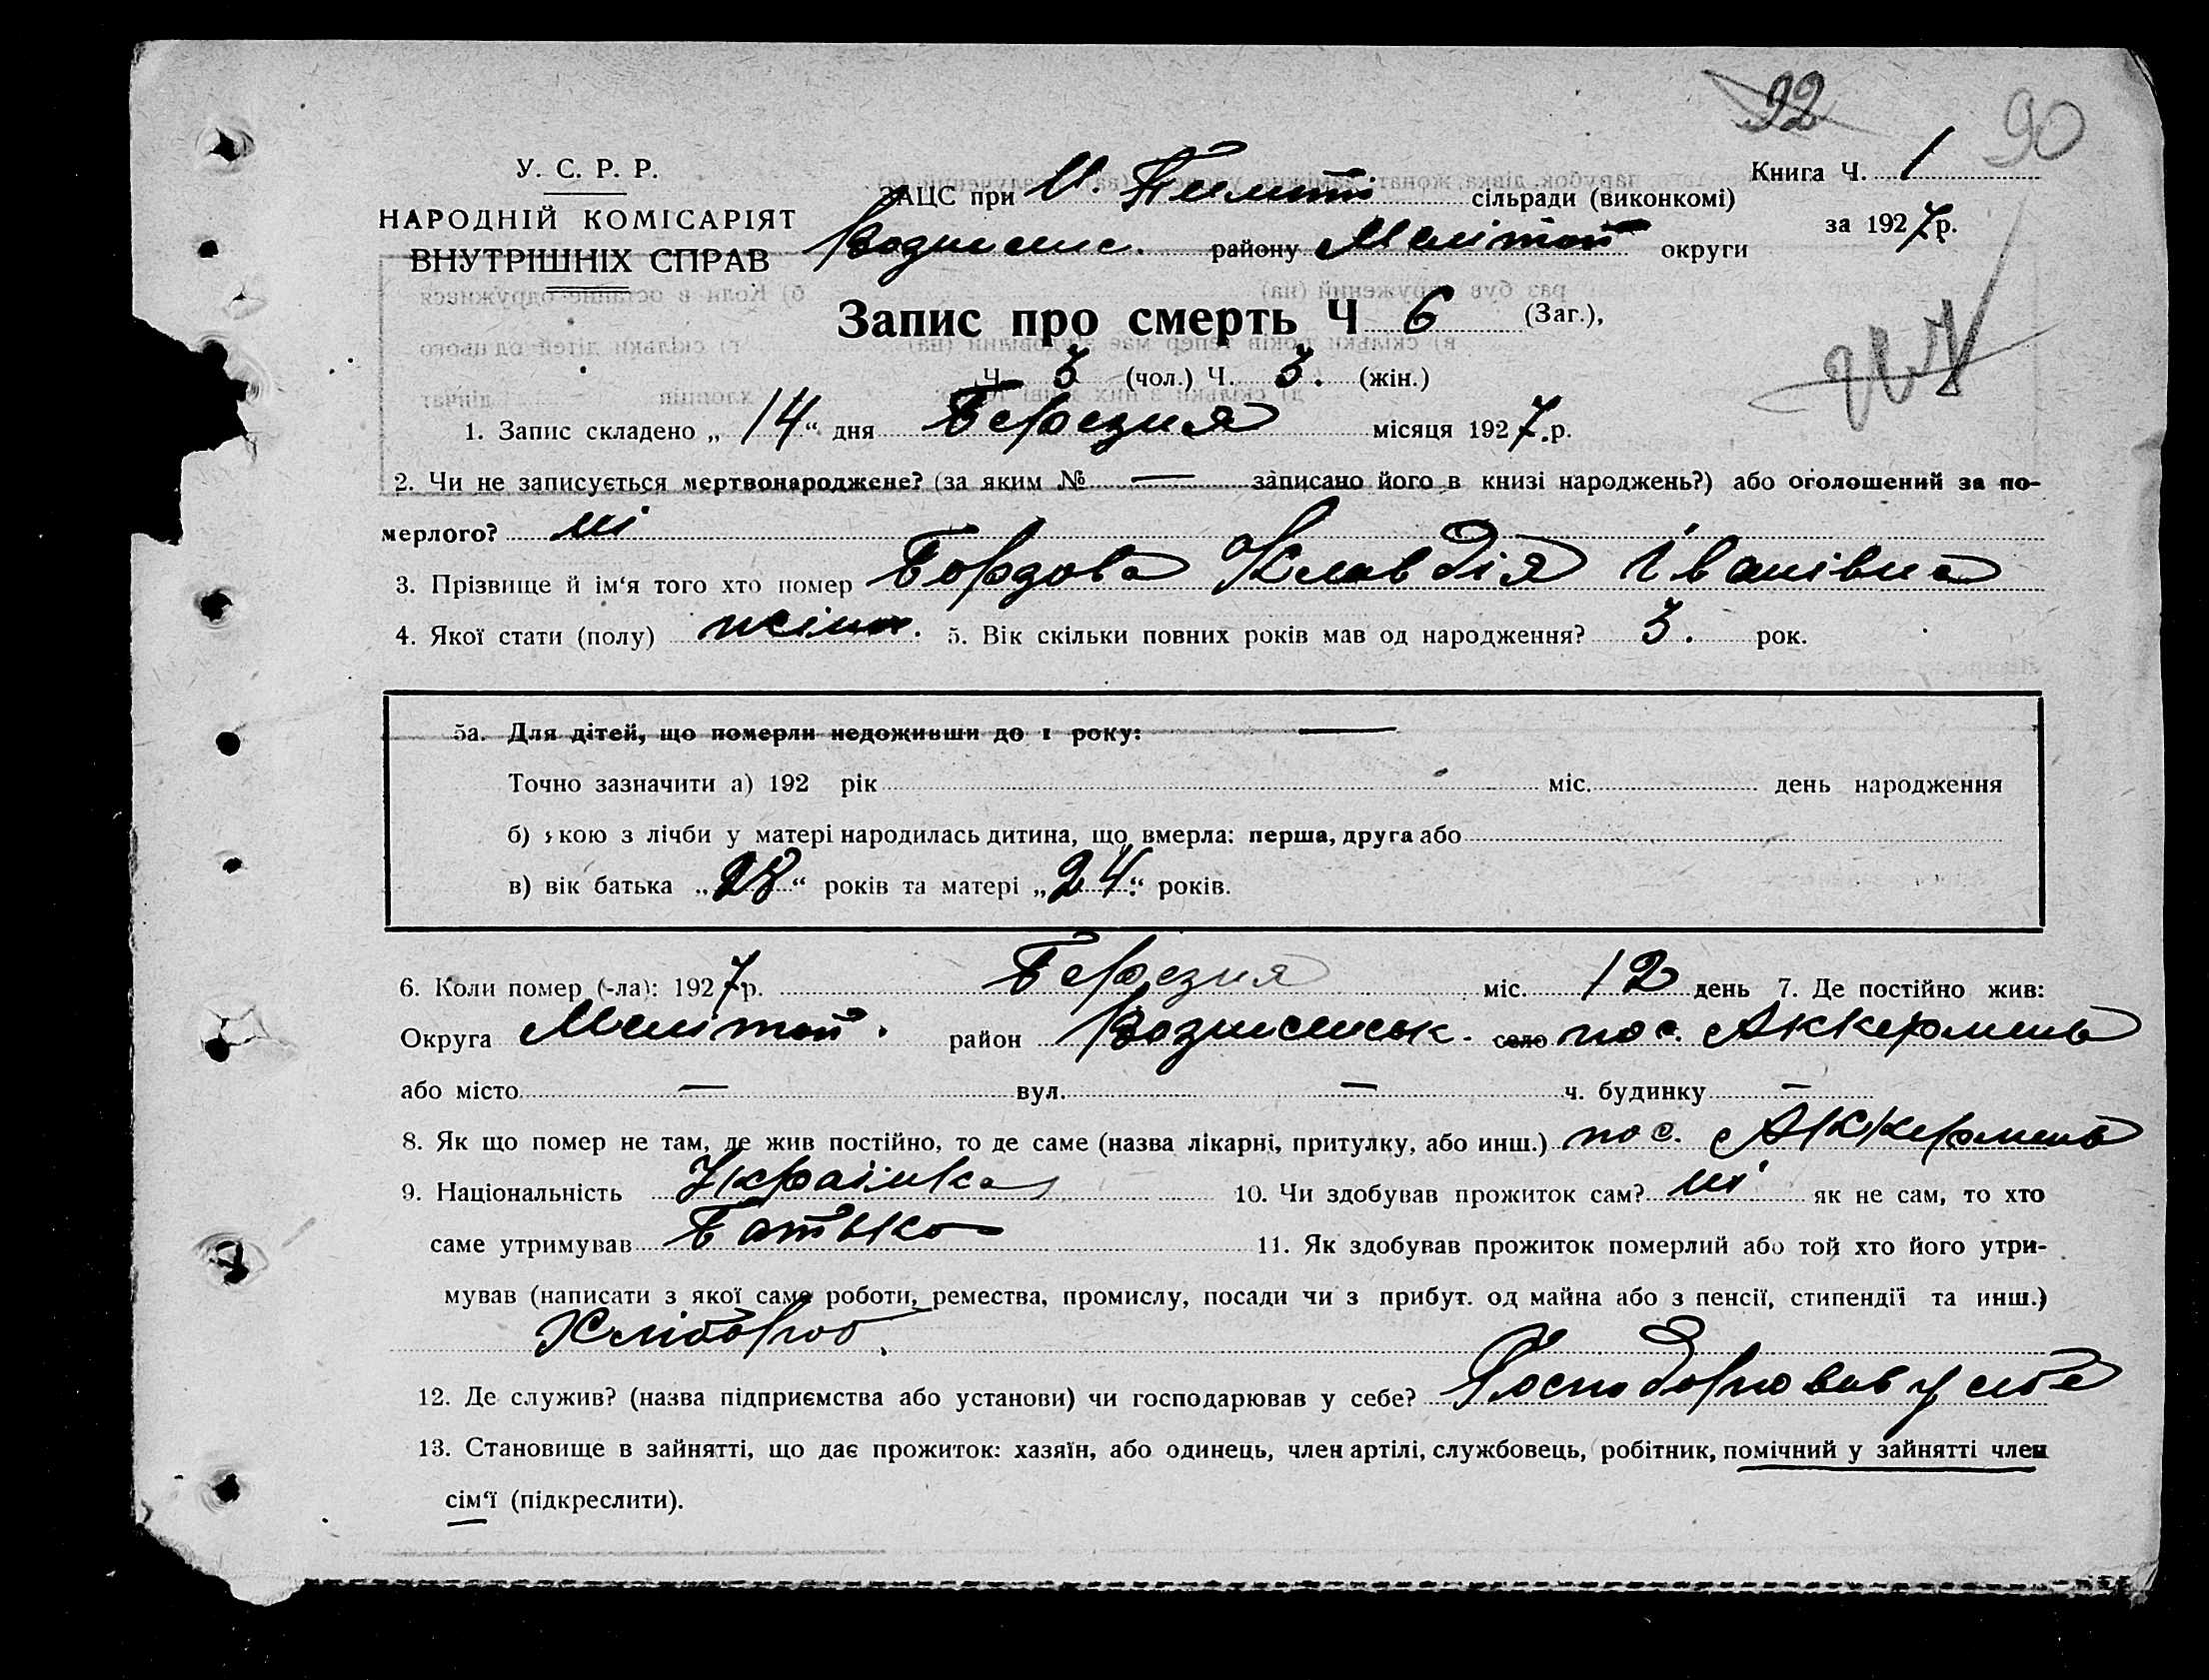 92 90
У. С. Р. Р.
НАРОДНІЙ КОМІСАРІЯТ
ВНУТРІШНІХ СПРАВ
ЗАЦС при сільради (виконкомі)
району Мелітоп округи
Книга Ч. 1
за 1927 р.
Запис про смерть Ч 6 (Заг.),
Ч. 3 (чол.) Ч. 3. (жін.)
1. Запис складено „ 14 “ дня Березня місяця 1927.р.
2. Чи не записується мертвонароджене? (за яким № — записано його в книзі народжень?) або оголошений за по-
мерлого? ні
3. Прізвище й ім‘я того хто помер Борзова Клавдія Іванівна
4. Якої стати (полу) жіноч. 5. Вік скільки повних років мав од народження? 3. рок.
5а. Для дітей, що померли недоживши до 1 року: —
Точно зазначити а) 192 рік міс. день народження
б) якою з лічби у матері народилась дитина, що вмерла: перша, друга або
в) вік батька „28“ років та матері „24“ років.
6. Коли помер (-ла): 1927 р. Березня міс. 12 день 7. Де постійно жив:
Округа Мелітоп. район Вознесенськ. село пос. Аккермень
або місто — вул. — ч. будинку —
8. Як що помер не там, де жив постійно, то де саме (назва лікарні, притулку, або инш.) пос. Аккермень
9. Національність Українка 10. Чи здобував прожиток сам? ні як не сам, то хто
саме утримував Батько 11. Як здобував прожиток померлий або той хто його утри-
мував (написати з якої саме роботи, ремества, промислу, посади чи з прибут. од майна або з пенсії, стипендії та инш.)
Хлібороб.
12. Де служив? (назва підприємства або установи) чи господарював у себе? Господорював у себе
13. Становище в зайнятті, що дає прожиток: хазяїн, або одинець, член артілі, службовець, робітник, помічний у зайнятті член
сім‘ї (підкреслити).